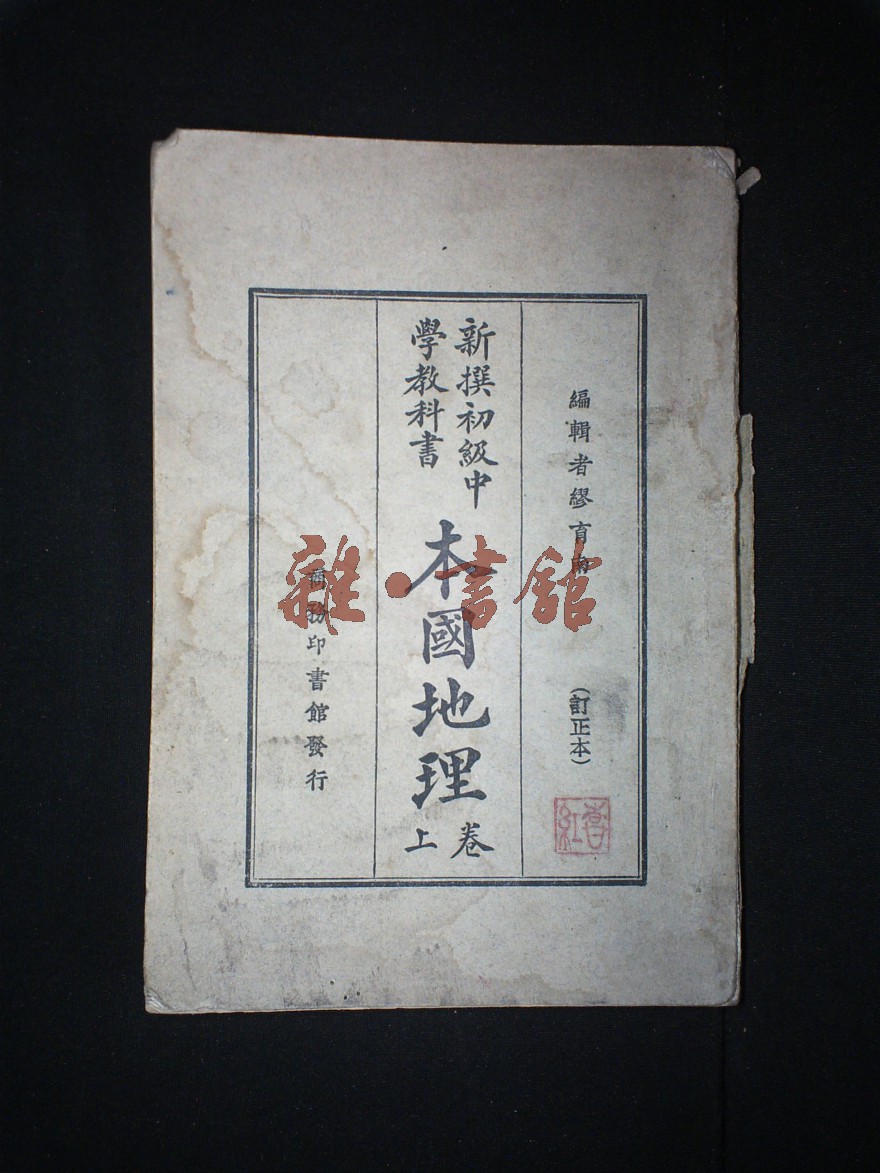 編輯者繆育南
(訂正本)
新撰初級中
學教科書
本國地理
卷
上
商務印書館發行
雜·書館